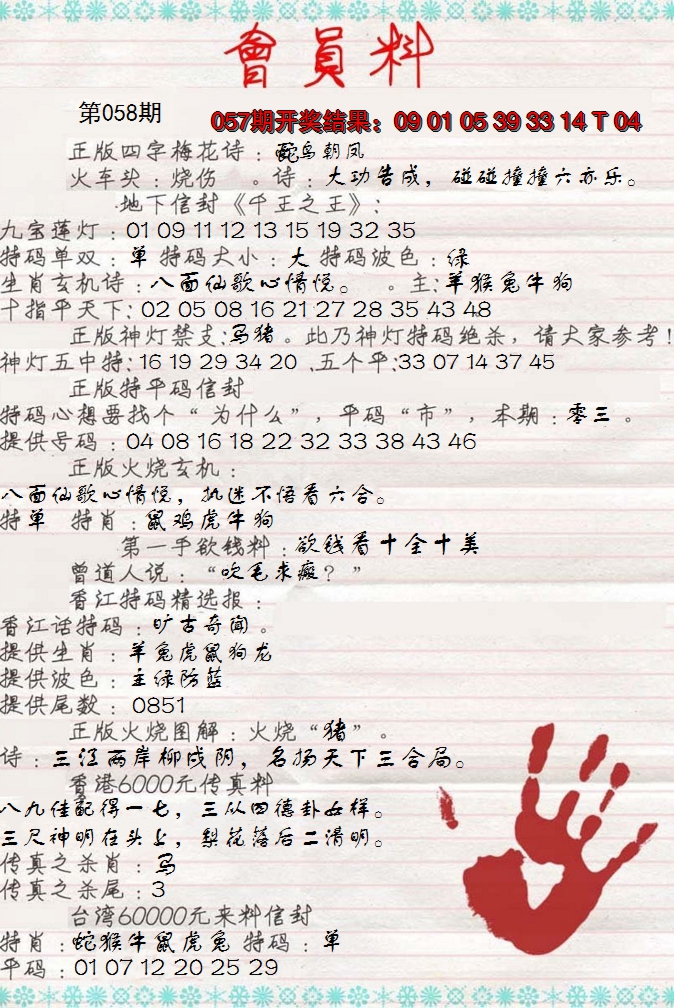 會員料
第058期
057期开奖结果：09 01 05 39 33 14 T 04
正版四字梅花诗：蛇鸟朝凤
火车头：烧伤 。诗：大功告成，碰碰撞撞六亦乐。
地下信封《千王之王》：
九宝莲灯：01 09 11 12 13 15 19 32 35
特码单双：单 特码大小：大 特码波色：绿
生肖玄机诗：八面仙歌心情悦。 。主：羊猴兔牛狗
十指平天下：02 05 08 16 21 27 28 35 43 48
正版神灯禁支：马猪。此乃神灯特码绝杀，请大家参考！
神灯五中特：16 19 29 34 20 .五个平：33 07 14 37 45
正版特平码信封
特码心想要找个“为什么”，平码“市”，本期：零三。
提供号码：04 08 16 18 22 32 33 38 43 46
正版火烧玄机：
八面仙歌心情悦，执迷不悟看六合。
特单 特肖：鼠鸡虎牛狗
第一手欲钱料：欲钱看十全十美
曾道人说：“吹毛求癍？”
香江特码精选报：
香江话特码：旷古奇闻。
提供生肖：羊兔虎鼠狗龙
提供波色：主绿防蓝
提供尾数：0851
正版火烧图解：火烧“猪”。
诗：三江两岸柳成阴，名扬天下三合局。
香港6000元传真料
八九佳配得一七，三从四德卦女样。
三尺神明在头上，梨花落后二清明。
传真之杀肖：马
传真之杀尾：3
台湾60000元来料信封
特肖：蛇猴牛鼠虎兔 特码：单
平码：01 07 12 20 25 29